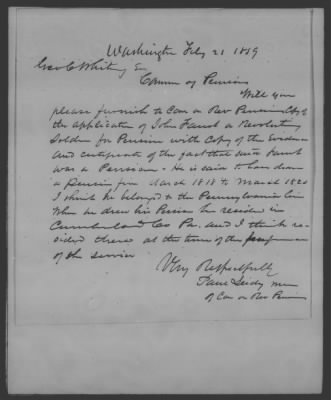 Washington Feby 21 1859
Geo C Whiting Esq
Commr of Pensions
Will you
please furnish to Com on Rev Pensions Copy of
the application of John Faust a Revoluty
Soldier for Pension with Copy of the Evidence
and certificate of the fact that said Faust
was a Pensioner. He is said to have drawn
a Pension from March 1818 to March 1820
I think he belonged to the Pennsylvania line
When he drew his Pension he resided in
Cumberland Co Pa. and I think re-
sided there at the time of the performance
of the service
Very Respectfully
Paul Leidy mem
of Com on Rev Pensions